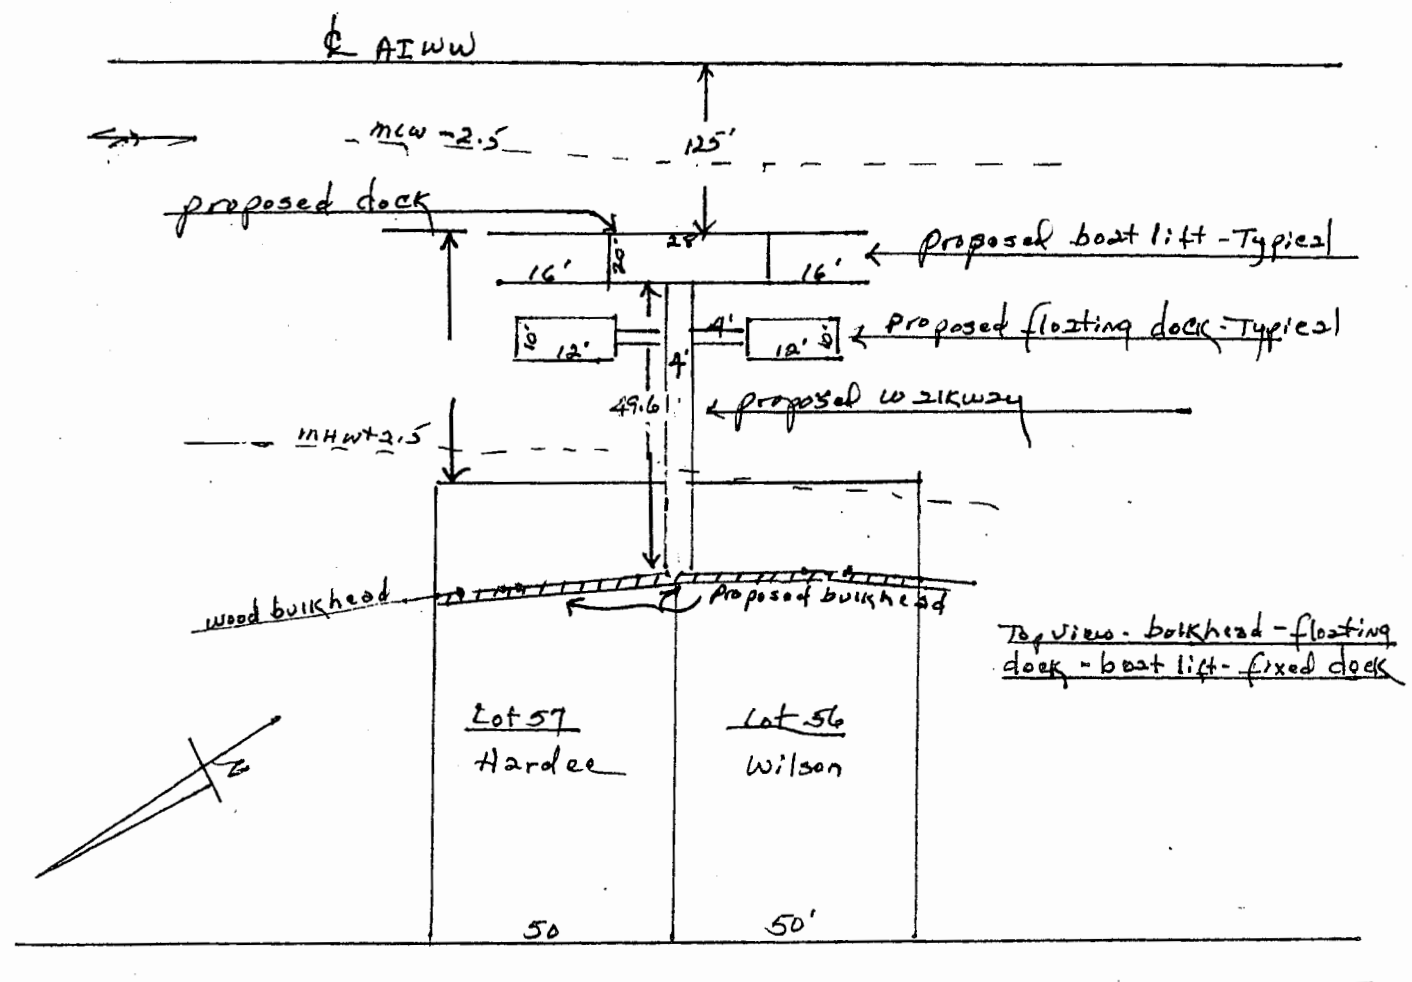 ℄ AIWW
MLW -2.5
125'
proposed dock
28'
20'
16'
16'
proposed boat lift - Typical
10'
12'
4'
12'
10'
proposed floating dock - Typical
4'
49.6
proposed walkway
MHW+2.5
wood bulkhead
Proposed bulkhead
Top view - bulkhead - floating
dock - boat lift - fixed dock
Lot 57
Hardee
Lot 56
Wilson
N
50
50'